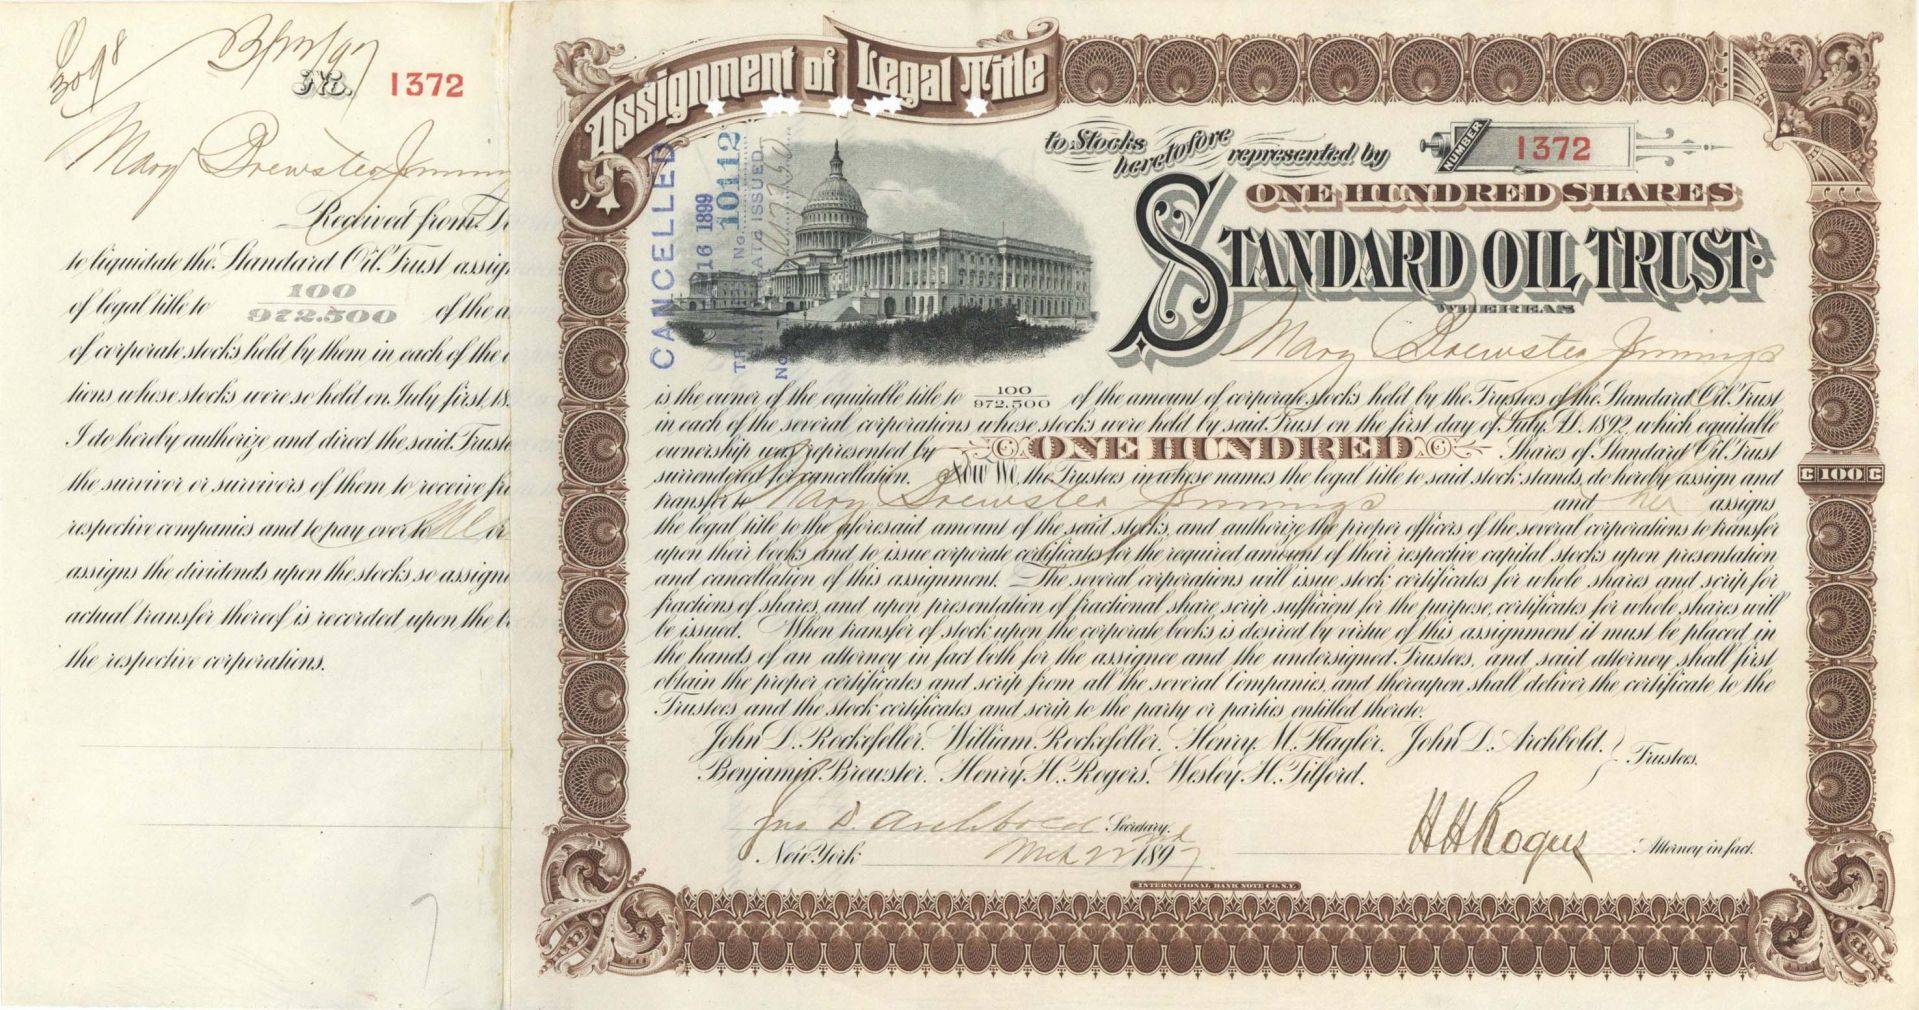 3098
B/Mr/97
No. 1372
Mary Brewster Jennings
Received from
to liquidate the Standard Oil Trust assig
of legal title to 100/972.500 of the a
of corporate stocks held by them in each of the
tions whose stocks were so held on July first, 18
I do hereby authorize and direct the said Truste
the survivor or survivors of them to receive fr
respective companies and to pay over to Me or
assigns the dividends upon the stocks so assigne
actual transfer thereof is recorded upon the b
the respective corporations.
Assignment of Legal Title
to Stocks heretofore represented by
NUMBER 1372
ONE HUNDRED SHARES
STANDARD OIL TRUST.
WHEREAS
Mary Brewster Jennings
CANCELLED
16 1899
No. 10112
ISSUED
No.
is the owner of the equitable title to 100/972.500 of the amount of corporate stocks held by the Trustees of the Standard Oil Trust
in each of the several corporations whose stocks were held by said Trust on the first day of July A.D. 1892, which equitable
ownership was represented by ONE HUNDRED Shares of Standard Oil Trust
surrendered for cancellation. Now We, the Trustees in whose names the legal title to said stock stands, do hereby assign and
transfer to Mary Brewster Jennings and her assigns
the legal title to the aforesaid amount of the said stocks, and authorize the proper officers of the several corporations to transfer
upon their books and to issue corporate certificates for the required amount of their respective capital stocks upon presentation
and cancellation of this assignment. The several corporations will issue stock certificates for whole shares and scrip for
fractions of shares, and upon presentation of fractional share scrip sufficient for the purpose, certificates for whole shares will
be issued. When transfer of stock upon the corporate books is desired by virtue of this assignment it must be placed in
the hands of an attorney in fact both for the assignee and the undersigned Trustees, and said attorney shall first
obtain the proper certificates and scrip from all the several Companies, and thereupon shall deliver the certificate to the
Trustees and the stock certificates and scrip to the party or parties entitled thereto.
John D. Rockefeller. William Rockefeller. Henry M. Flagler. John D. Archbold.
Benjamin Brewster. Henry H. Rogers. Wesley H. Tilford.
Trustees.
Jno. D. Archbold Secretary.
H H Rogers Attorney in fact.
New York Mch 22nd 1897
INTERNATIONAL BANK NOTE CO. N.Y.
C 100 C
7